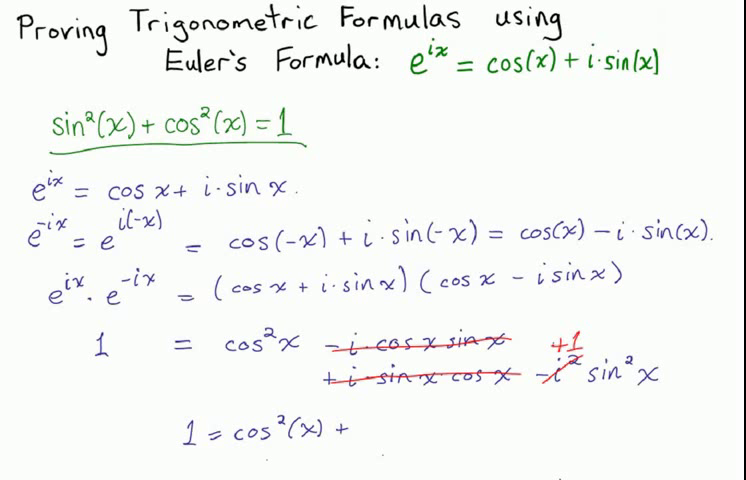 Proving Trigonometric Formulas using
Euler's Formula: e^{ix} = cos(x) + i·sin(x)
sin²(x) + cos²(x) = 1
e^{ix} = cos x + i·sin x.
e^{-ix} = e^{i(-x)} = cos(-x) + i·sin(-x) = cos(x) - i·sin(x).
e^{ix}·e^{-ix} = (cos x + i·sin x)(cos x - i sin x)
1 = cos²x - i·cos x sin x +1
+ i·sin x cos x - i² sin²x
1 = cos²(x) +